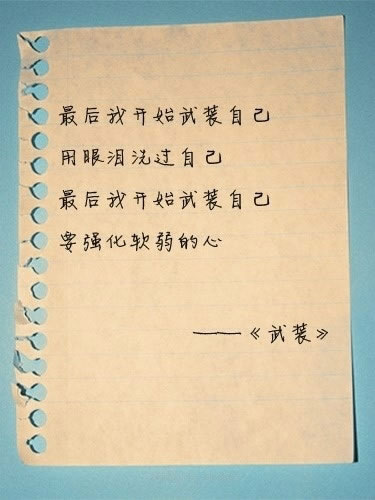 最后我开始武装自己
用眼泪洗过自己
最后我开始武装自己
要强化软弱的心
——《武装》